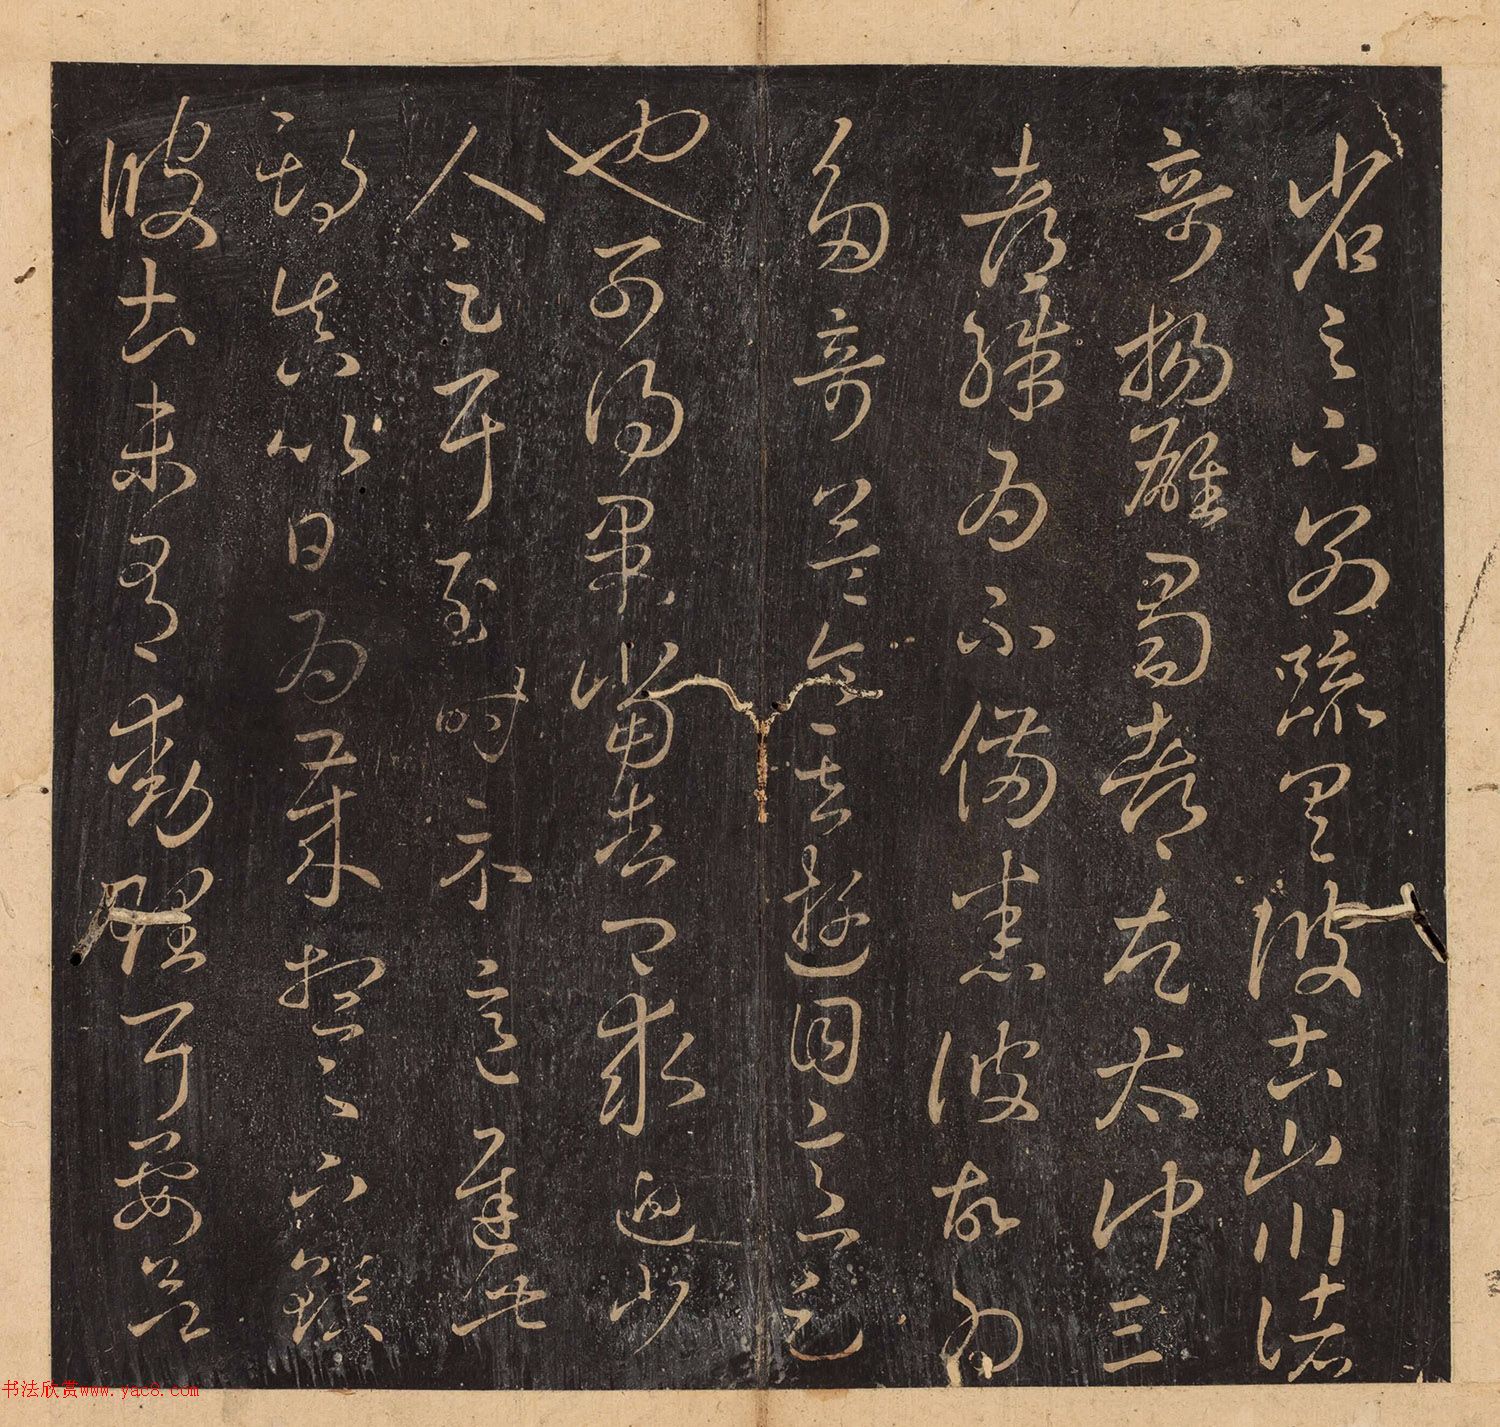 省足下別疏具彼土山川諸
奇揚雄蜀都左太沖三
都殊為不備悉彼故為
多奇益令其遊目意足
也可得果當告卿求迎少
人足耳至時示意遲此
期真以日為歲想足下鎮
彼土未有動理耳要欲
书法欣赏www.yac8.com